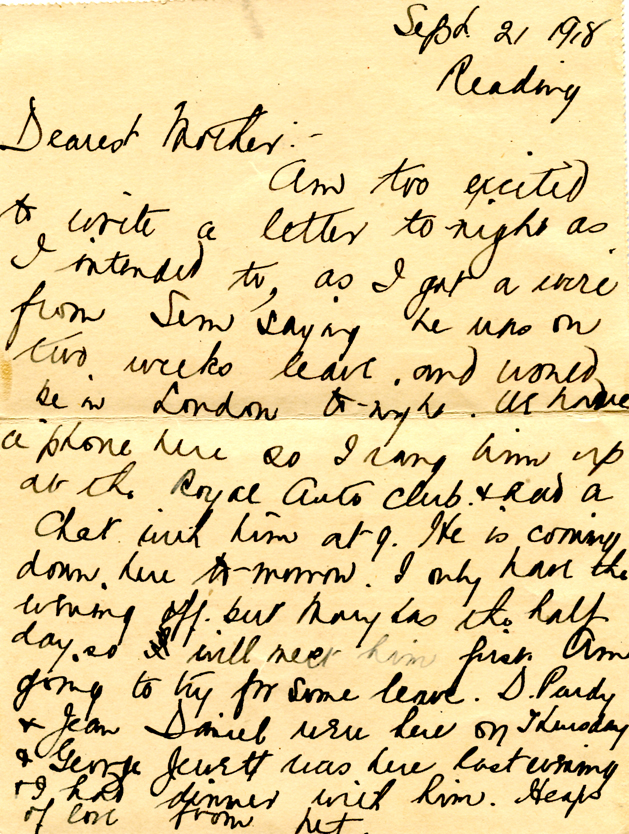 Sept. 21 1918
Reading
Dearest Mother:-
Am too excited
to write a letter to-night as
I intended to, as I got a wire
from Sem saying he was on
two weeks leave, and would
be in London to-night. We have
a phone here so I rang him up
at the Royal Auto Club & had a
chat with him at 9. He is coming
down here to-morrow. I only have the
evening off but Mary has the half
day so will meet him first. Am
going to try for some leave. D. Purdy
& Jean Daniel were here on Thursday
& George Jewett was here last evening
& I had dinner with him. Heaps
of love from